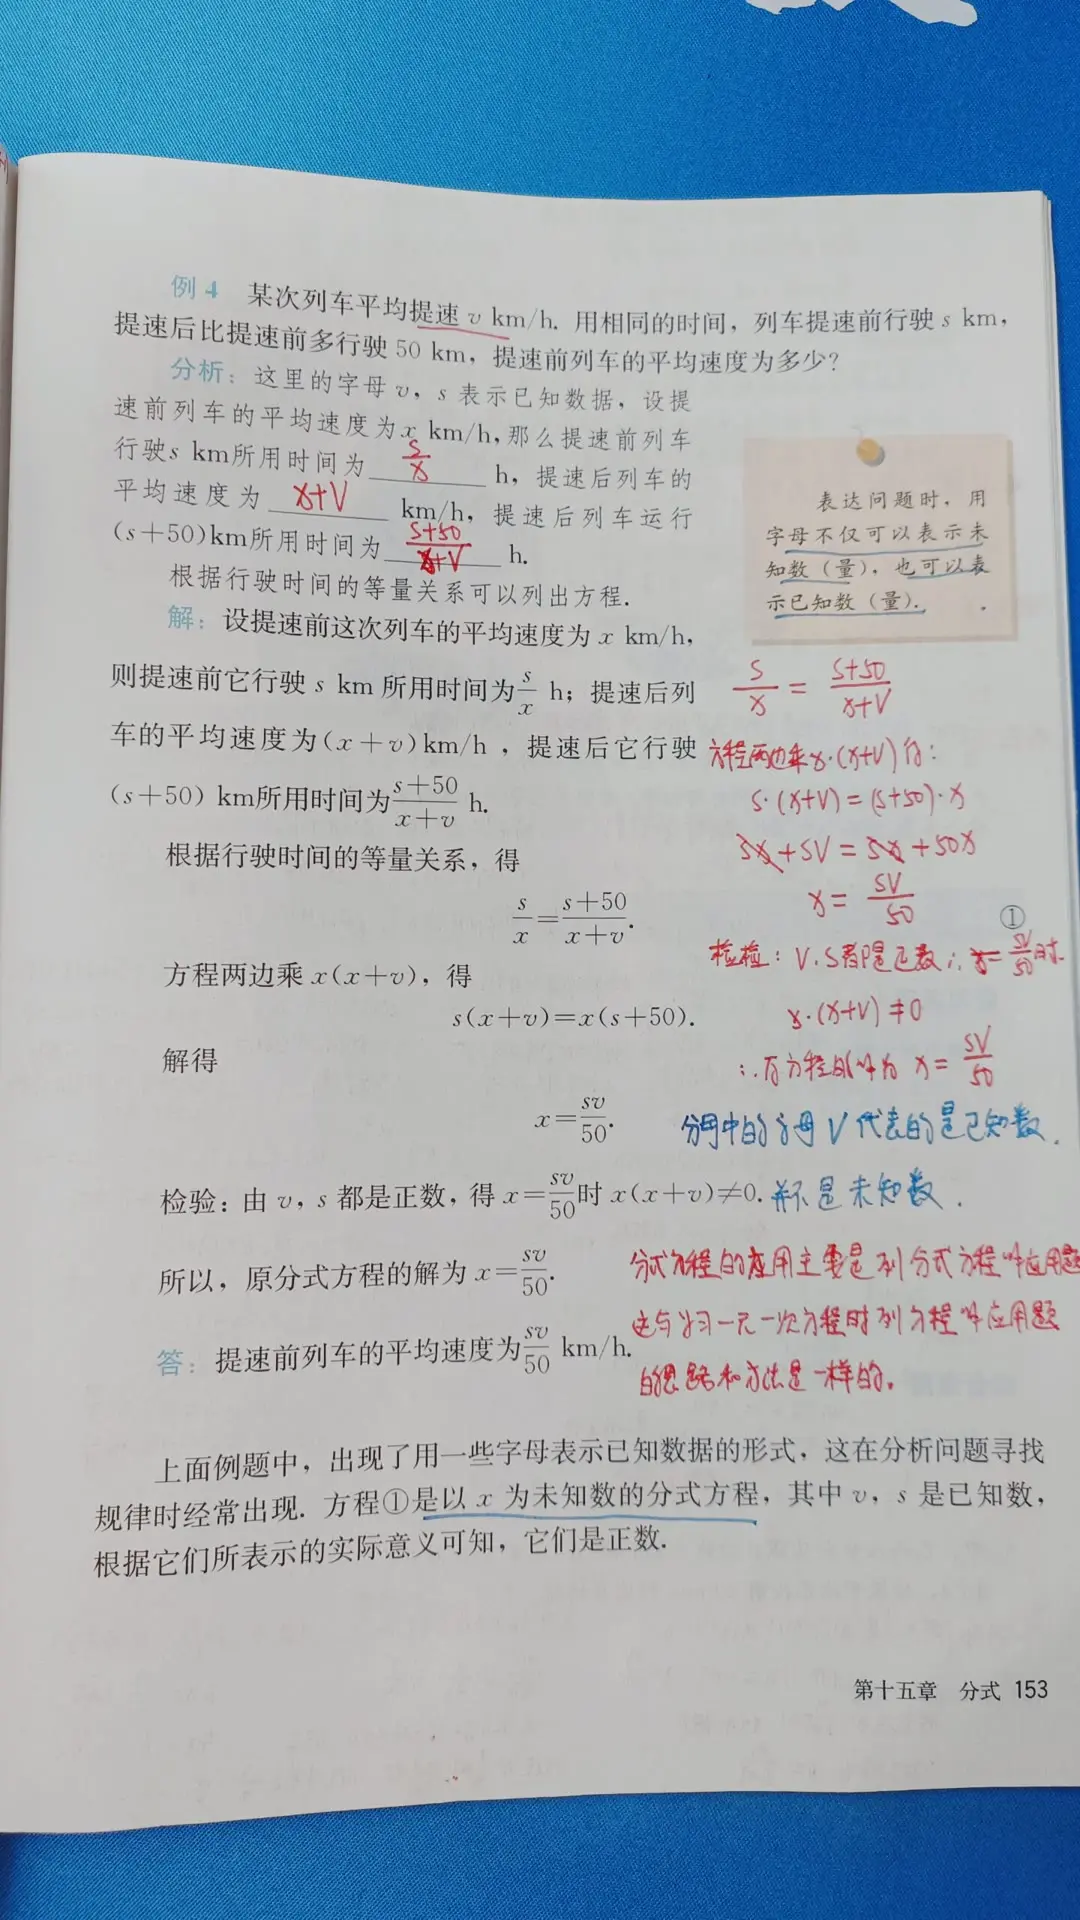 例 4 某次列车平均提速 v km/h. 用相同的时间，列车提速前行驶 s km，
提速后比提速前多行驶 50 km，提速前列车的平均速度为多少？
分析：这里的字母 v，s 表示已知数据，设提
速前列车的平均速度为 x km/h，那么提速前列车
行驶 s km所用时间为 s/x h，提速后列车的
平均速度为 x+V km/h，提速后列车运行
(s+50)km所用时间为 s+50/x+V h.
根据行驶时间的等量关系可以列出方程.
表达问题时，用
字母不仅可以表示未
知数（量），也可以表
示已知数（量）.
解：设提速前这次列车的平均速度为 x km/h，
则提速前它行驶 s km 所用时间为 s/x h；提速后列
车的平均速度为(x+v)km/h，提速后它行驶
(s+50) km所用时间为 s+50/x+v h.
根据行驶时间的等量关系，得
s/x = s+50/x+v. ①
方程两边乘 x(x+v)，得
s(x+v)=x(s+50).
解得
x = sv/50.
检验：由 v，s 都是正数，得 x = sv/50 时 x(x+v)≠0.
所以，原分式方程的解为 x = sv/50.
答：提速前列车的平均速度为 sv/50 km/h.
s/x = s+50/x+V
方程两边乘x·(x+V)得：
s·(x+V)=(s+50)·x
sx+sV=sx+50x
x = sV/50
检检：V、S都是正数∴x = sV/50时.
x·(x+V)≠0
∴方程的解为 x = sV/50
分母中的字母V代表的是已知数.
并不是未知数.
分式方程的应用主要是列分式方程解应用题
这与学习一元一次方程时列方程解应用题
的思路和方法是一样的.
上面例题中，出现了用一些字母表示已知数据的形式，这在分析问题寻找
规律时经常出现. 方程①是以 x 为未知数的分式方程，其中 v，s 是已知数，
根据它们所表示的实际意义可知，它们是正数.
第十五章 分式 153